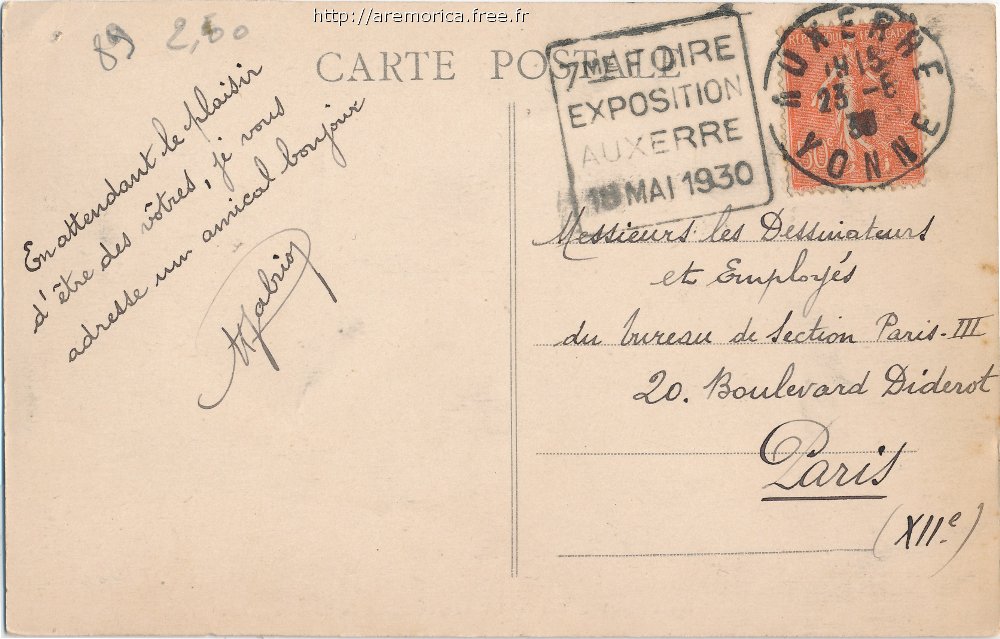 http://aremorica.free.fr
89 2,60
CARTE POSTALE
7ME FOIRE
EXPOSITION
AUXERRE
18 MAI 1930
AUXERRE
23 -5
30
YONNE
En attendant le plaisir
d'être des vôtres, je vous
adresse un amical bonjour
Messieurs les Dessinateurs
et Employés
du bureau de Section Paris-III
20. Boulevard Diderot
Paris
(XIIe)